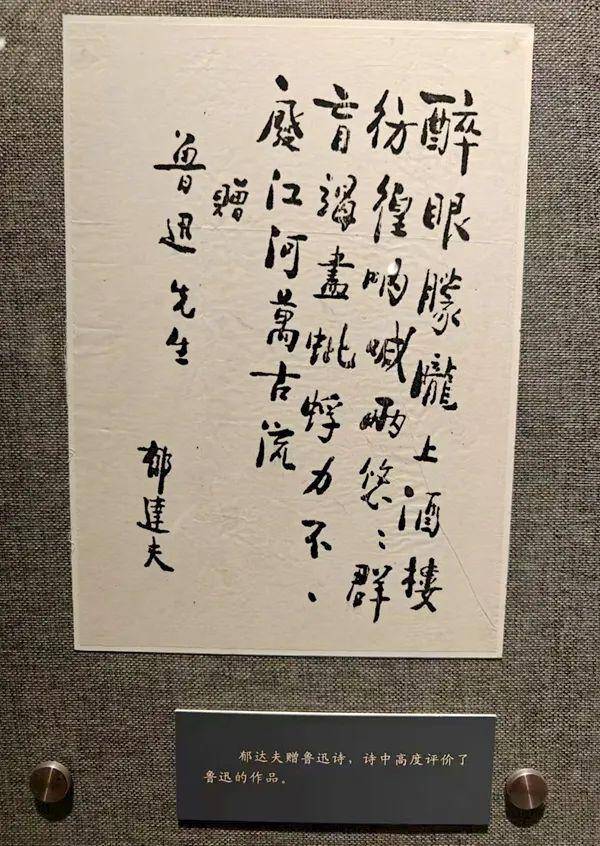 醉眼朦朧上酒樓
彷徨吶喊兩悠〻群
盲竭盡蚍蜉力不、
廢江河萬古流
贈
魯迅先生
郁達夫
郁达夫赠鲁迅诗，诗中高度评价了
鲁迅的作品。